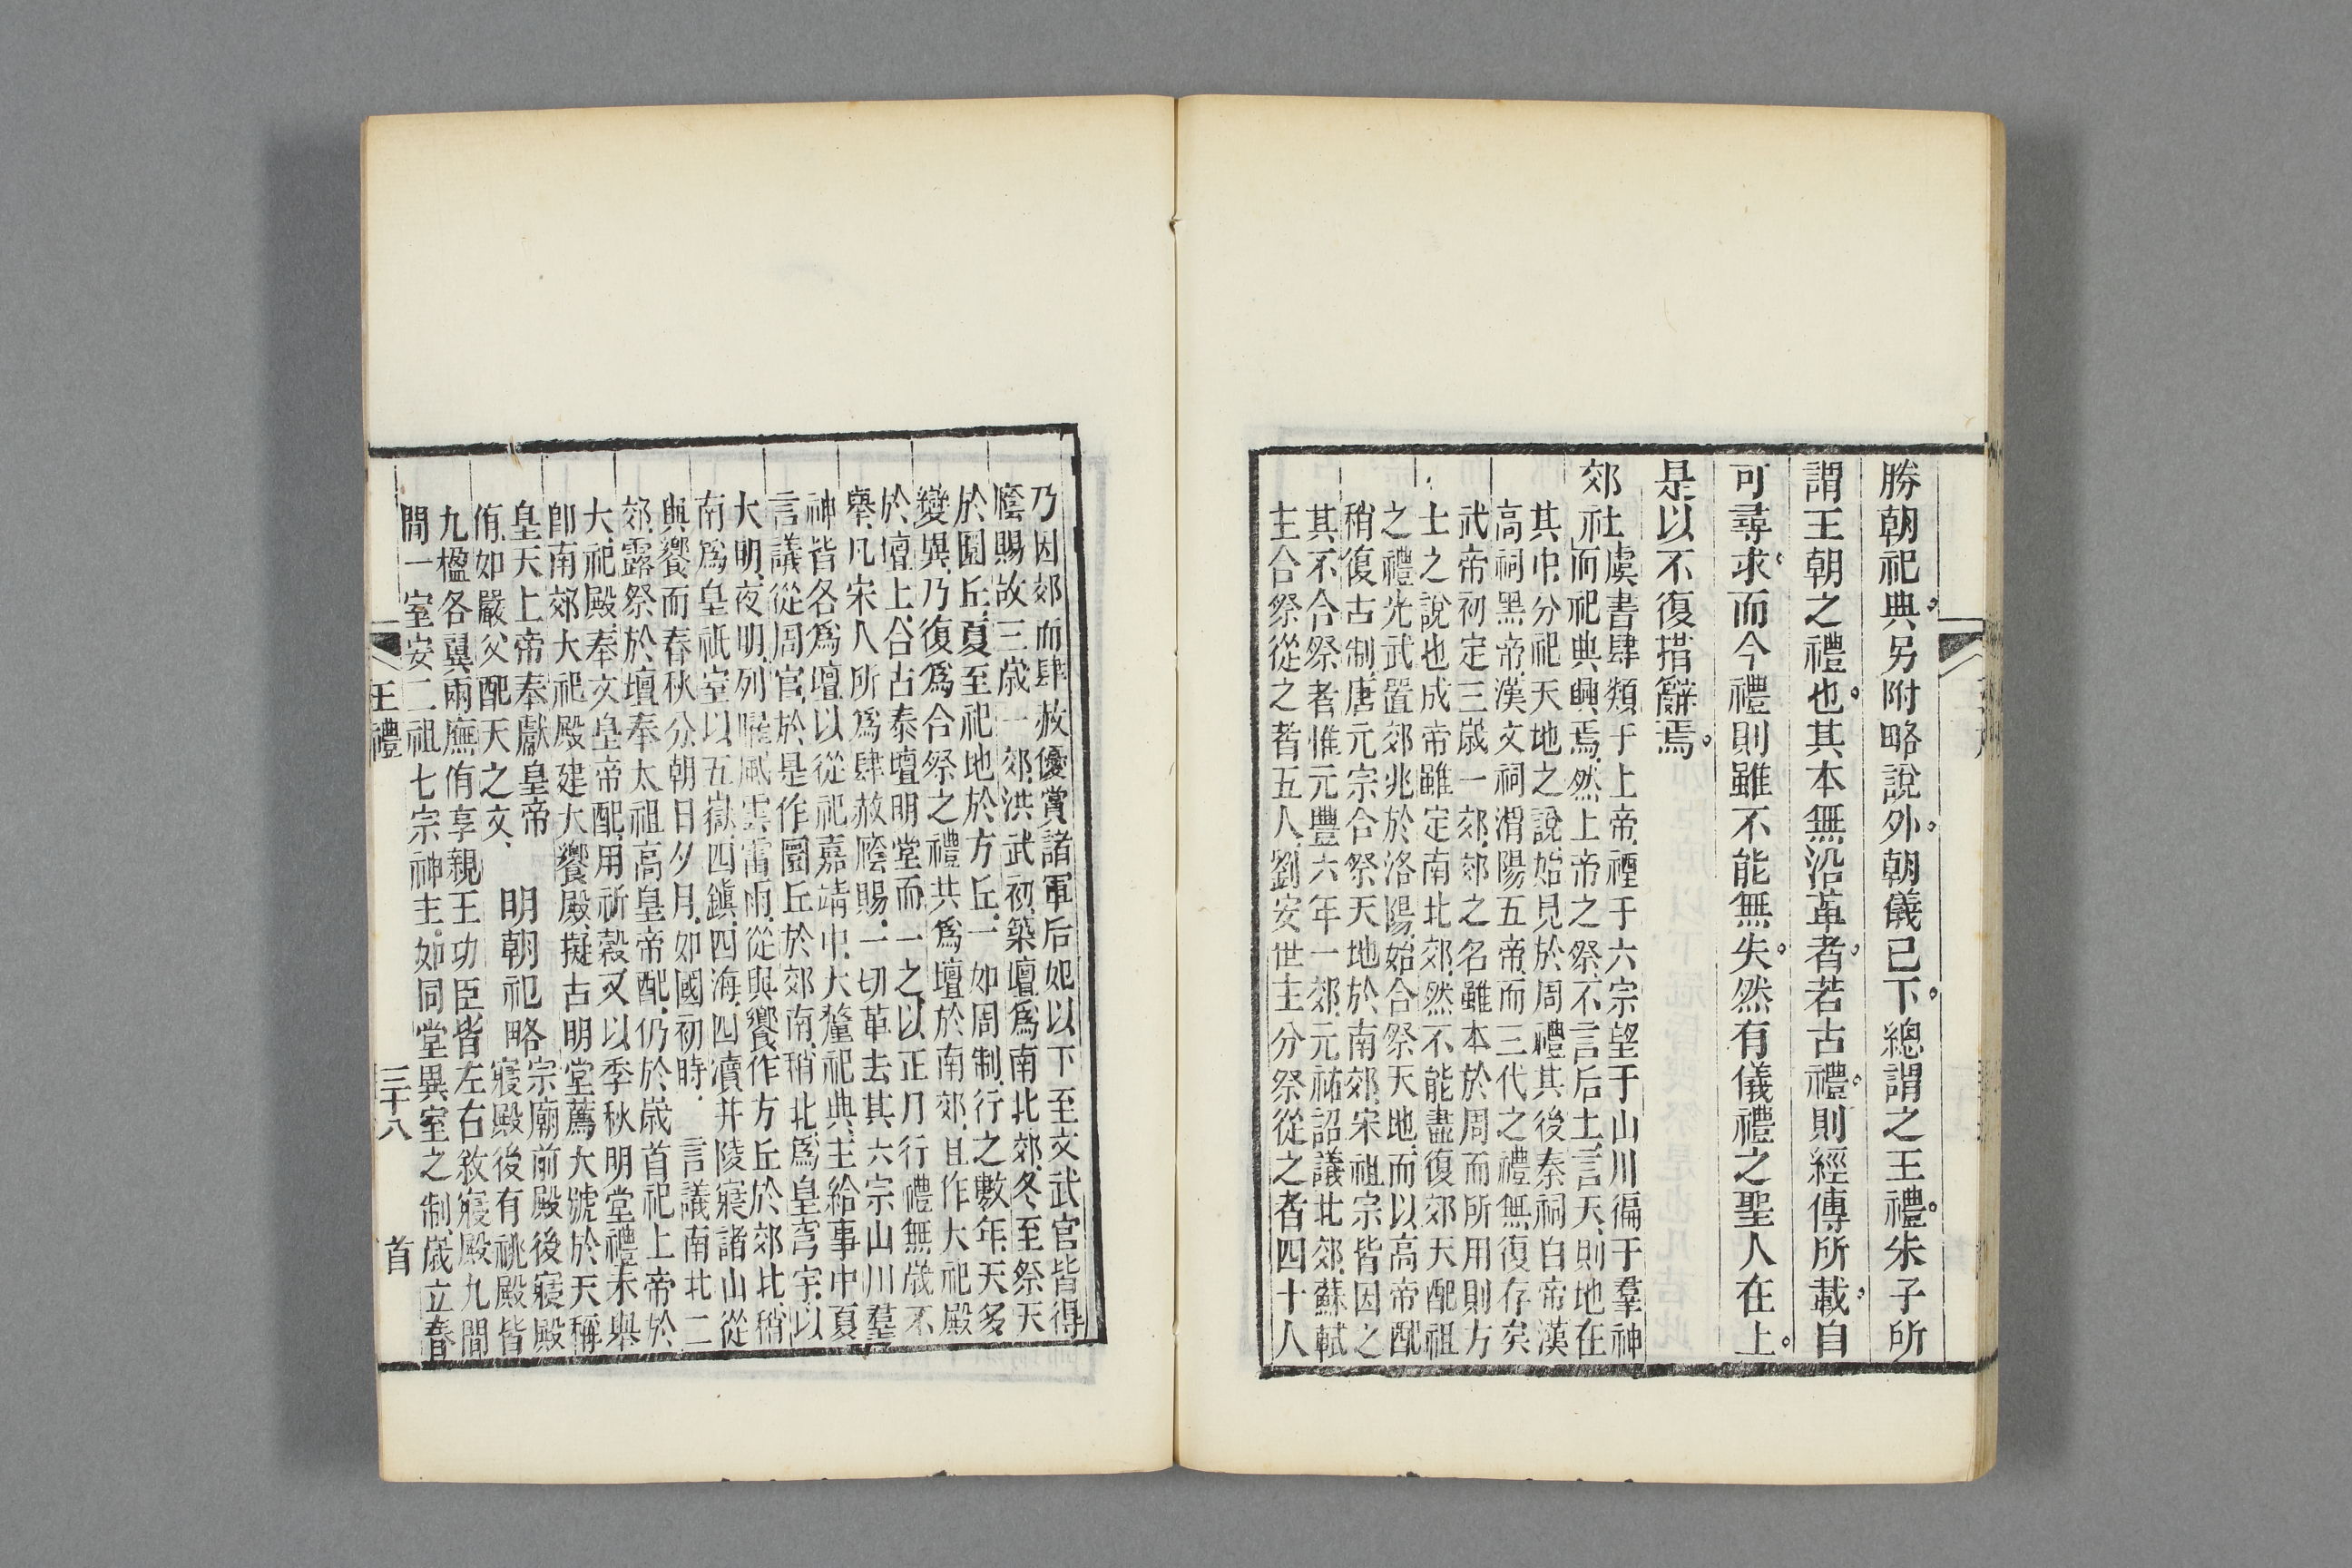 勝朝祀典另附略說外朝儀已下總謂之王禮朱子所
謂王朝之禮也其本無沿革者若古禮則經傳所載自
可尋求而今禮則雖不能無失然有儀禮之聖人在上
是以不復措辭焉
郊社
虞書肆類于上帝禋于六宗望于山川徧于羣神
而祀典興焉然上帝之祭不言后土言天則地在
其中分祀天地之說始見於周禮其後秦祠白帝漢
高祠黑帝漢文祠渭陽五帝而三代之禮無復存矣
武帝初定三歲一郊郊之名雖本於周而所用則方
士之說也成帝雖定南北郊然不能盡復郊天配祖
之禮光武置郊兆於洛陽始合祭天地而以高帝配
稍復古制唐元宗合祭天地於南郊宋祖宗皆因之
其不合祭者惟元豐六年一郊元祐詔議北郊蘇軾
主合祭從之者五人劉安世主分祭從之者四十人
乃因郊而肆赦優賞諸軍后妃以下至文武官皆得
廕賜故三歲一郊洪武初築壇爲南北郊冬至祭天
於圜丘夏至祀地於方丘一如周制行之數年天多
變異乃復爲合祭之禮共爲壇於南郊且作大祀殿
於壇上合古泰壇明堂而一之以正月行禮無歲不
舉凡宋人所爲肆赦廕賜一切革去其六宗山川羣
神皆各爲壇以從祀嘉靖中大釐祀典主給事中夏
言議從周官於是作圜丘於郊南稍北爲皇穹宇以
大明夜明列曜風雲雷雨從與饗作方丘於郊北稍
南爲皇祇室以五嶽四鎮四海四瀆井陵寢諸山從
與饗而春秋分朝日夕月如國初時 言議南北二
郊露祭於壇奉太祖高皇帝配仍於歲首祀上帝於
大祀殿奉文皇帝配用祈穀又以季秋明堂禮未舉
卽南郊大祀殿建大饗殿擬古明堂薦大號於天稱
皇天上帝奉獻皇帝
侑如嚴父配天之文
明朝祀略
宗廟前殿後寢殿
寢殿後有祧殿皆
九楹各翼兩廡侑享親王功臣皆左右敘寢殿九間
間一室安二祖七宗神主如同堂異室之制歲立春
王禮
三十八
首